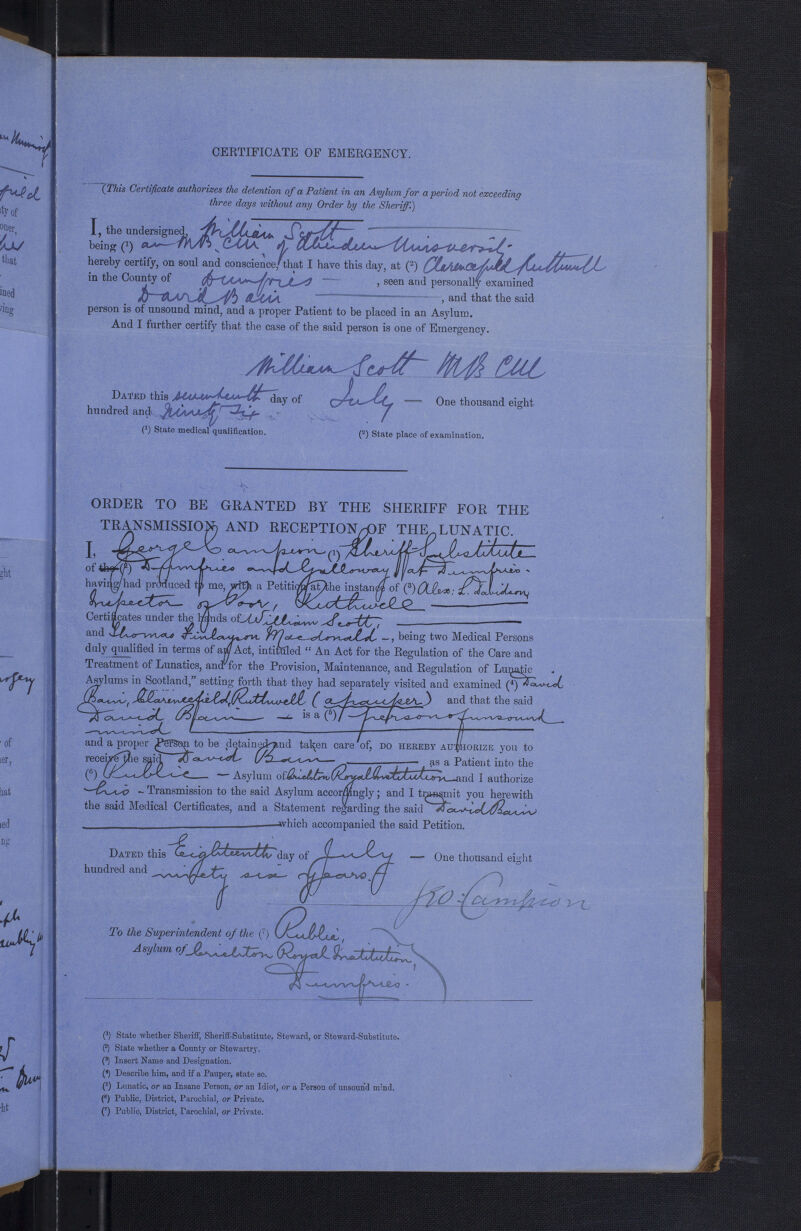 CERTIFICATE OF EMERGENCY.
(This Certificate authorizes the detention of a Patient in an Asylum for a period not exceeding
three days without any Order by the Sheriff.)
I, the undersigned, William Scott
being (¹) an MB. CM of Aberdeen University
hereby certify, on soul and conscience, that I have this day, at (²) Clarencefield Ruthwell
in the County of Dumfries — , seen and personally examined
David Bain — , and that the said
person is of unsound mind, and a proper Patient to be placed in an Asylum.
And I further certify that the case of the said person is one of Emergency.
William Scott MB CM
DATED this seventeenth day of July — One thousand eight
hundred and Ninety Six
(¹) State medical qualification. (²) State place of examination.
ORDER TO BE GRANTED BY THE SHERIFF FOR THE
TRANSMISSION AND RECEPTION OF THE LUNATIC.
I, George Campion (¹) Sheriff-Substitute
of the (²) Dumfries and Galloway at Dumfries
having had produced to me, with a Petition at the instance of (³) Alex: L. Davidson,
Inspector of Poor, Ruthwell
Certificates under the hands of William Scott,
and Thomas Finlayson Macdonald —, being two Medical Persons
duly qualified in terms of an Act, intituled "An Act for the Regulation of the Care and
Treatment of Lunatics, and for the Provision, Maintenance, and Regulation of Lunatic
Asylums in Scotland," setting forth that they had separately visited and examined (⁴) David
Bain, Clarencefield, Ruthwell (a pauper) and that the said
David Bain — is a (⁵) person of unsound
mind
and a proper Person to be detained and taken care of, DO HEREBY AUTHORIZE you to
receive the said David Bain as a Patient into the
(⁶) Public — Asylum of Crichton Royal Institution and I authorize
his — Transmission to the said Asylum accordingly; and I transmit you herewith
the said Medical Certificates, and a Statement regarding the said David Bain
which accompanied the said Petition.
DATED this Eighteenth day of July — One thousand eight
hundred and ninety six years.
Campion
To the Superintendent of the (⁷) Public,
Asylum of Crichton Royal Institution,
Dumfries.
(¹) State whether Sheriff, Sheriff-Substitute, Steward, or Steward-Substitute.
(²) State whether a County or Stewartry.
(³) Insert Name and Designation.
(⁴) Describe him, and if a Pauper, state so.
(⁵) Lunatic, or an Insane Person, or an Idiot, or a Person of unsound mind.
(⁶) Public, District, Parochial, or Private.
(⁷) Public, District, Parochial, or Private.